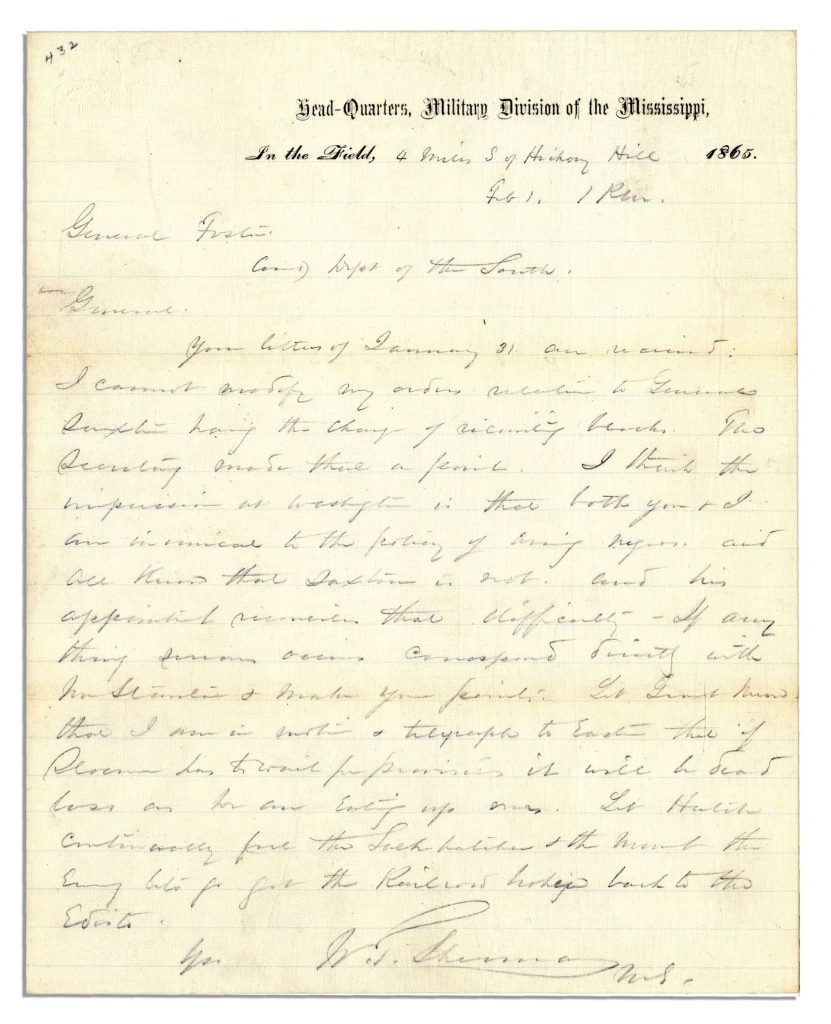 432
Head-Quarters, Military Division of the Mississippi,
In the Field, 4 Miles S of Hickory Hill 1865.
Feb 1. 1 P.M.
General Foster.
Comd Dept of the South.
General.
Your letters of January 31 are received.
I cannot modify my orders relative to General
Saxton having the charge of recruiting blacks. The
Secretary made that a point. I think the
impression at Washington is that both you & I
are inimical to the policy of arming negros. and
all know that Saxton is not. and his
appointmt reconciles that difficulty - If any
thing serious occurs correspond directly with
Mr Stanton & make your points. Let Grant know
that I am in motion & telegraph to Easton that if
Slocum has to wait for provisions it will be dead
loss as we are Eating up ours. Let Hatch
continually feel the Salkehatchie & the moment the
Enemy lets go get the Railroad back to the
Edisto.
Yrs W.T. Sherman
M.G.